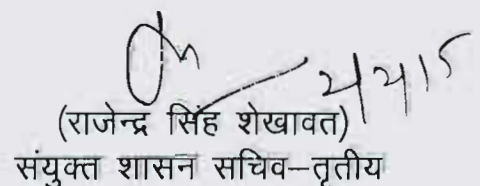 (राजेन्द्र सिंह शेखावत)
संयुक्त शासन सचिव–तृतीय